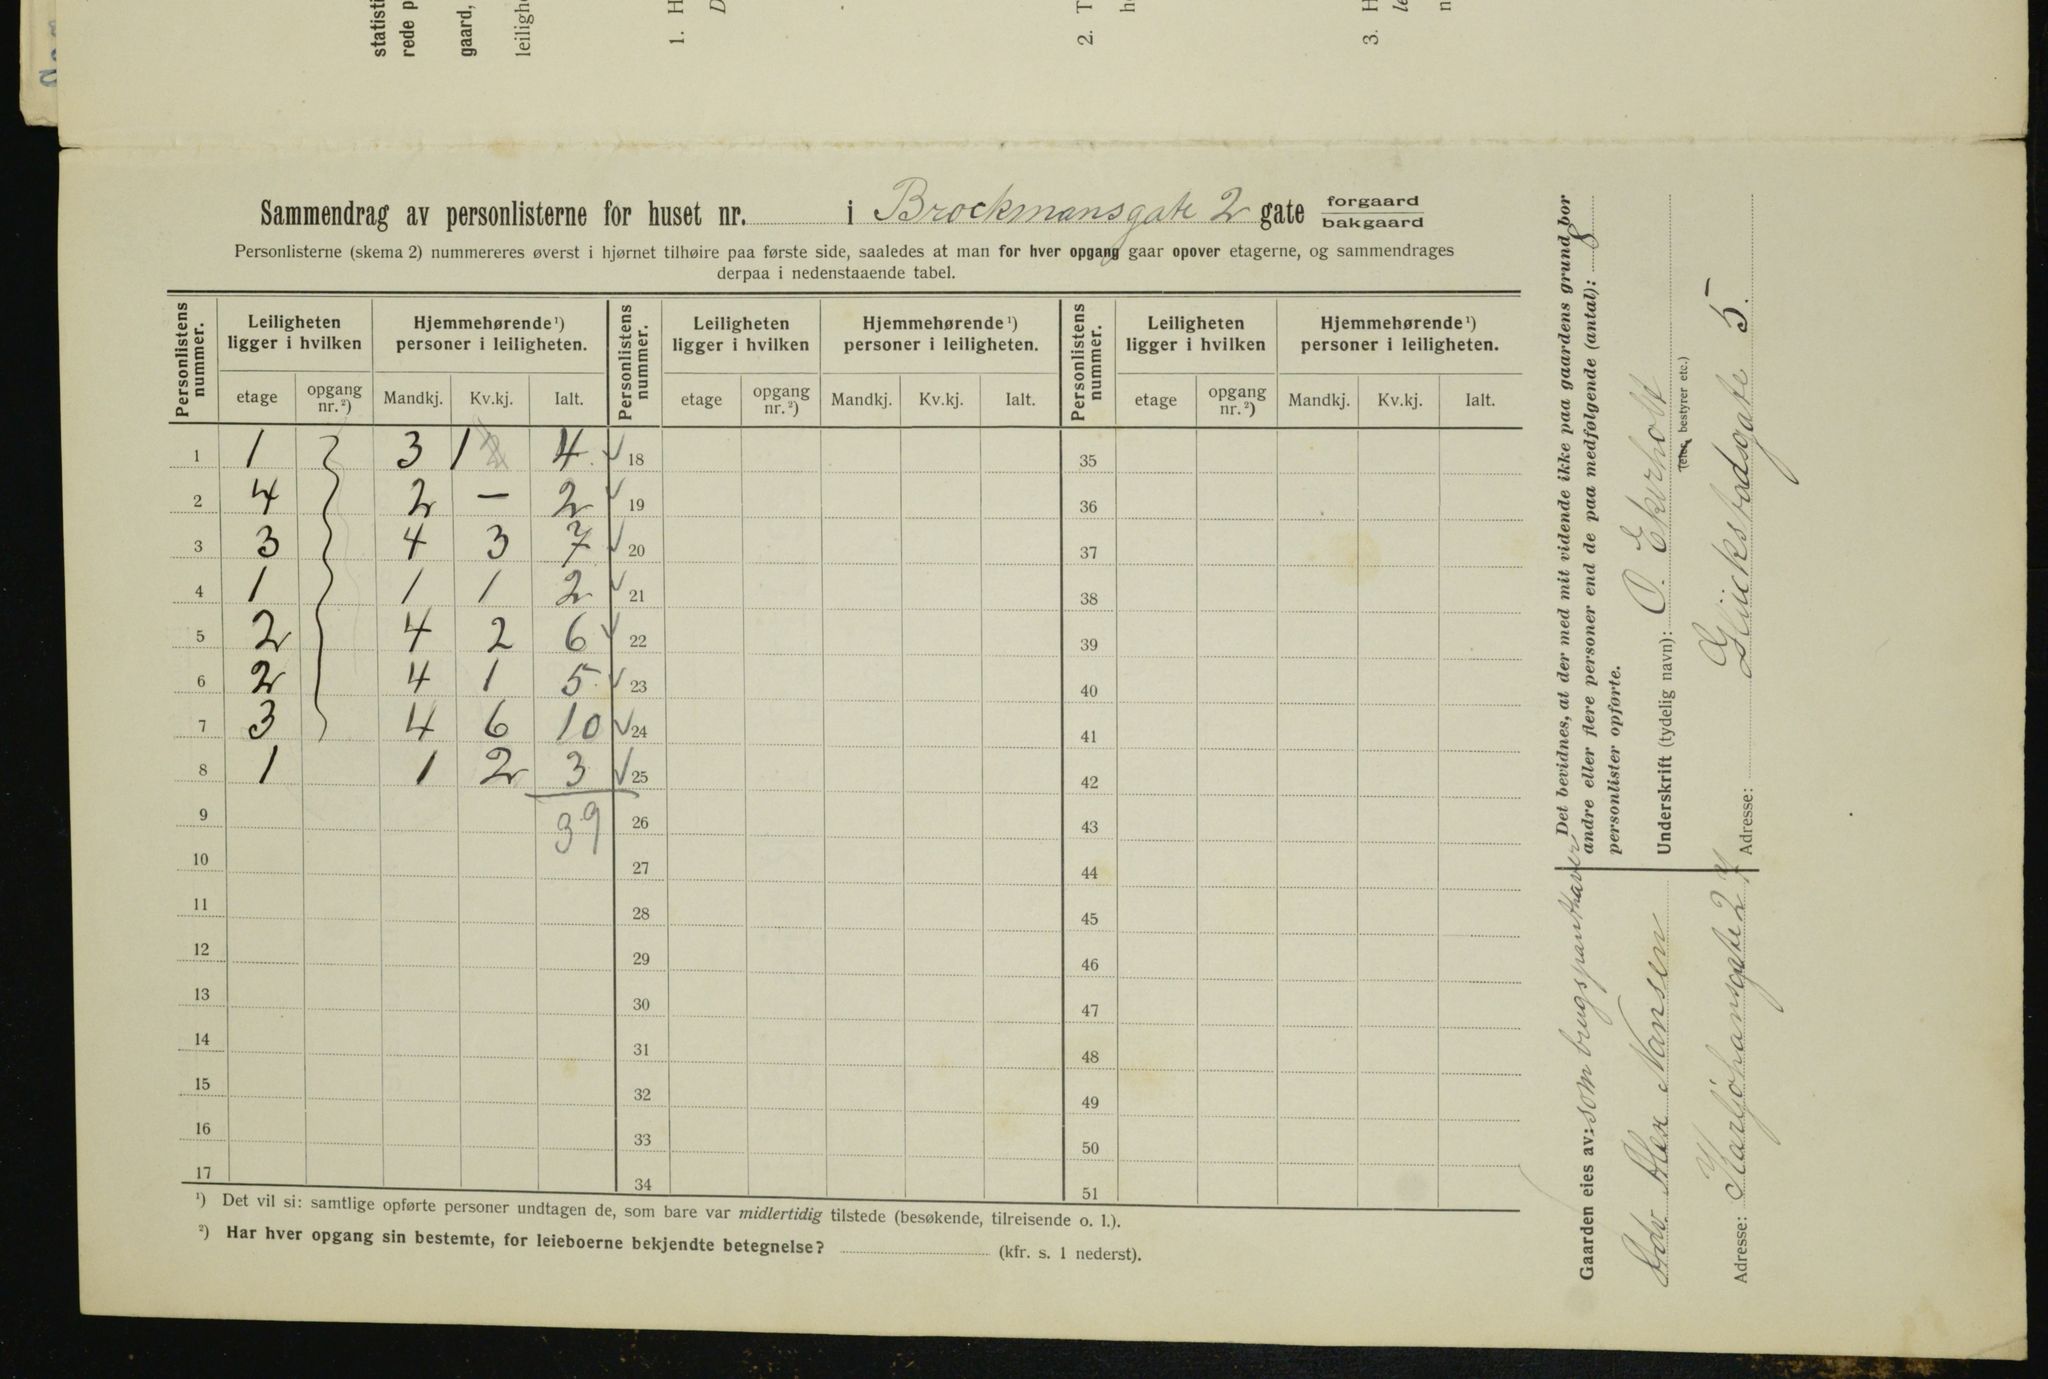 statisti
rede p
gaard,
leiligh
1. H
D
2. T
h
3. H
le
n
Sammendrag av personlisterne for huset nr. i Brockmansgate 2 gate forgaard
bakgaard
Personlisterne (skema 2) nummereres øverst i hjørnet tilhøire paa første side, saaledes at man for hver opgang gaar opover etagerne, og sammendrages
derpaa i nedenstaaende tabel.
Personlistens nummer. Leiligheten ligger i hvilken Hjemmehørende ¹) personer i leiligheten. Personlistens nummer. Leiligheten ligger i hvilken Hjemmehørende ¹) personer i leiligheten. Personlistens nummer. Leiligheten ligger i hvilken Hjemmehørende ¹) personer i leiligheten.
etage opgang nr. ²) Mandkj. Kv.kj. Ialt. etage opgang nr. ²) Mandkj. Kv.kj. Ialt. etage opgang nr. ²) Mandkj. Kv.kj. Ialt.
1 1 3 1 2 4 ✓ 18 35
2 4 2 – 2 ✓ 19 36
3 3 4 3 7 ✓ 20 37
4 1 1 1 2 ✓ 21 38
5 2 4 2 6 ✓ 22 39
6 2 4 1 5 ✓ 23 40
7 3 4 6 10 ✓ 24 41
8 1 1 2 3 ✓ 25 42
9 39 26 43
10 27 44
11 28 45
12 29 46
13 30 47
14 31 48
15 32 49
16 33 50
17 34 51
¹) Det vil si: samtlige opførte personer undtagen de, som bare var midlertidig tilstede (besøkende, tilreisende o. l.).
²) Har hver opgang sin bestemte, for leieboerne bekjendte betegnelse? (kfr. s. 1 nederst).
Gaarden eies av: som brugspanthaver
Adv. Alex Nansen
Adresse: Karljohansgate 27
Det bevidnes, at der med mit vidende ikke paa gaardens grund bor
andre eller flere personer end de paa medfølgende (antal): 8
personlister opførte.
Underskrift (tydelig navn): O. Ekerholt
(eier, bestyrer etc.)
Adresse: Glücksbodsgate 5.